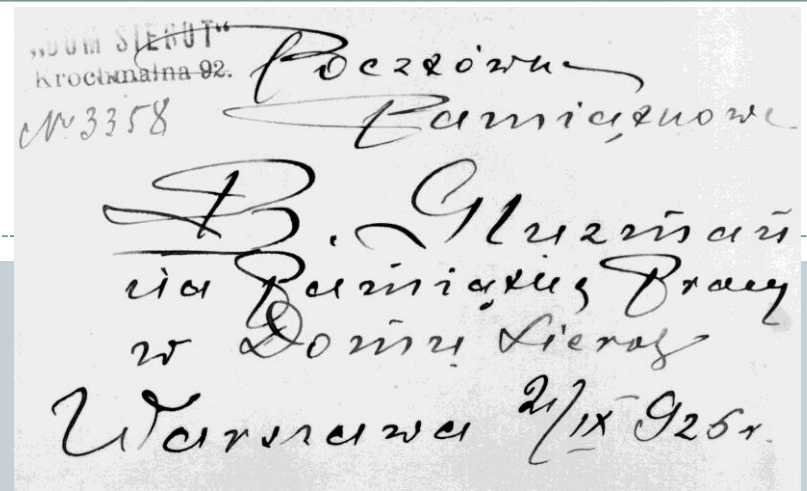 „DOM SIEROT“
Krochmalna 92.
№ 3358
Pocztówka
Pamiątkowa
B. Gluzman
na Pamiątkę Pracy
w Domu Sierot
Warszawa 21/IX 925 r.